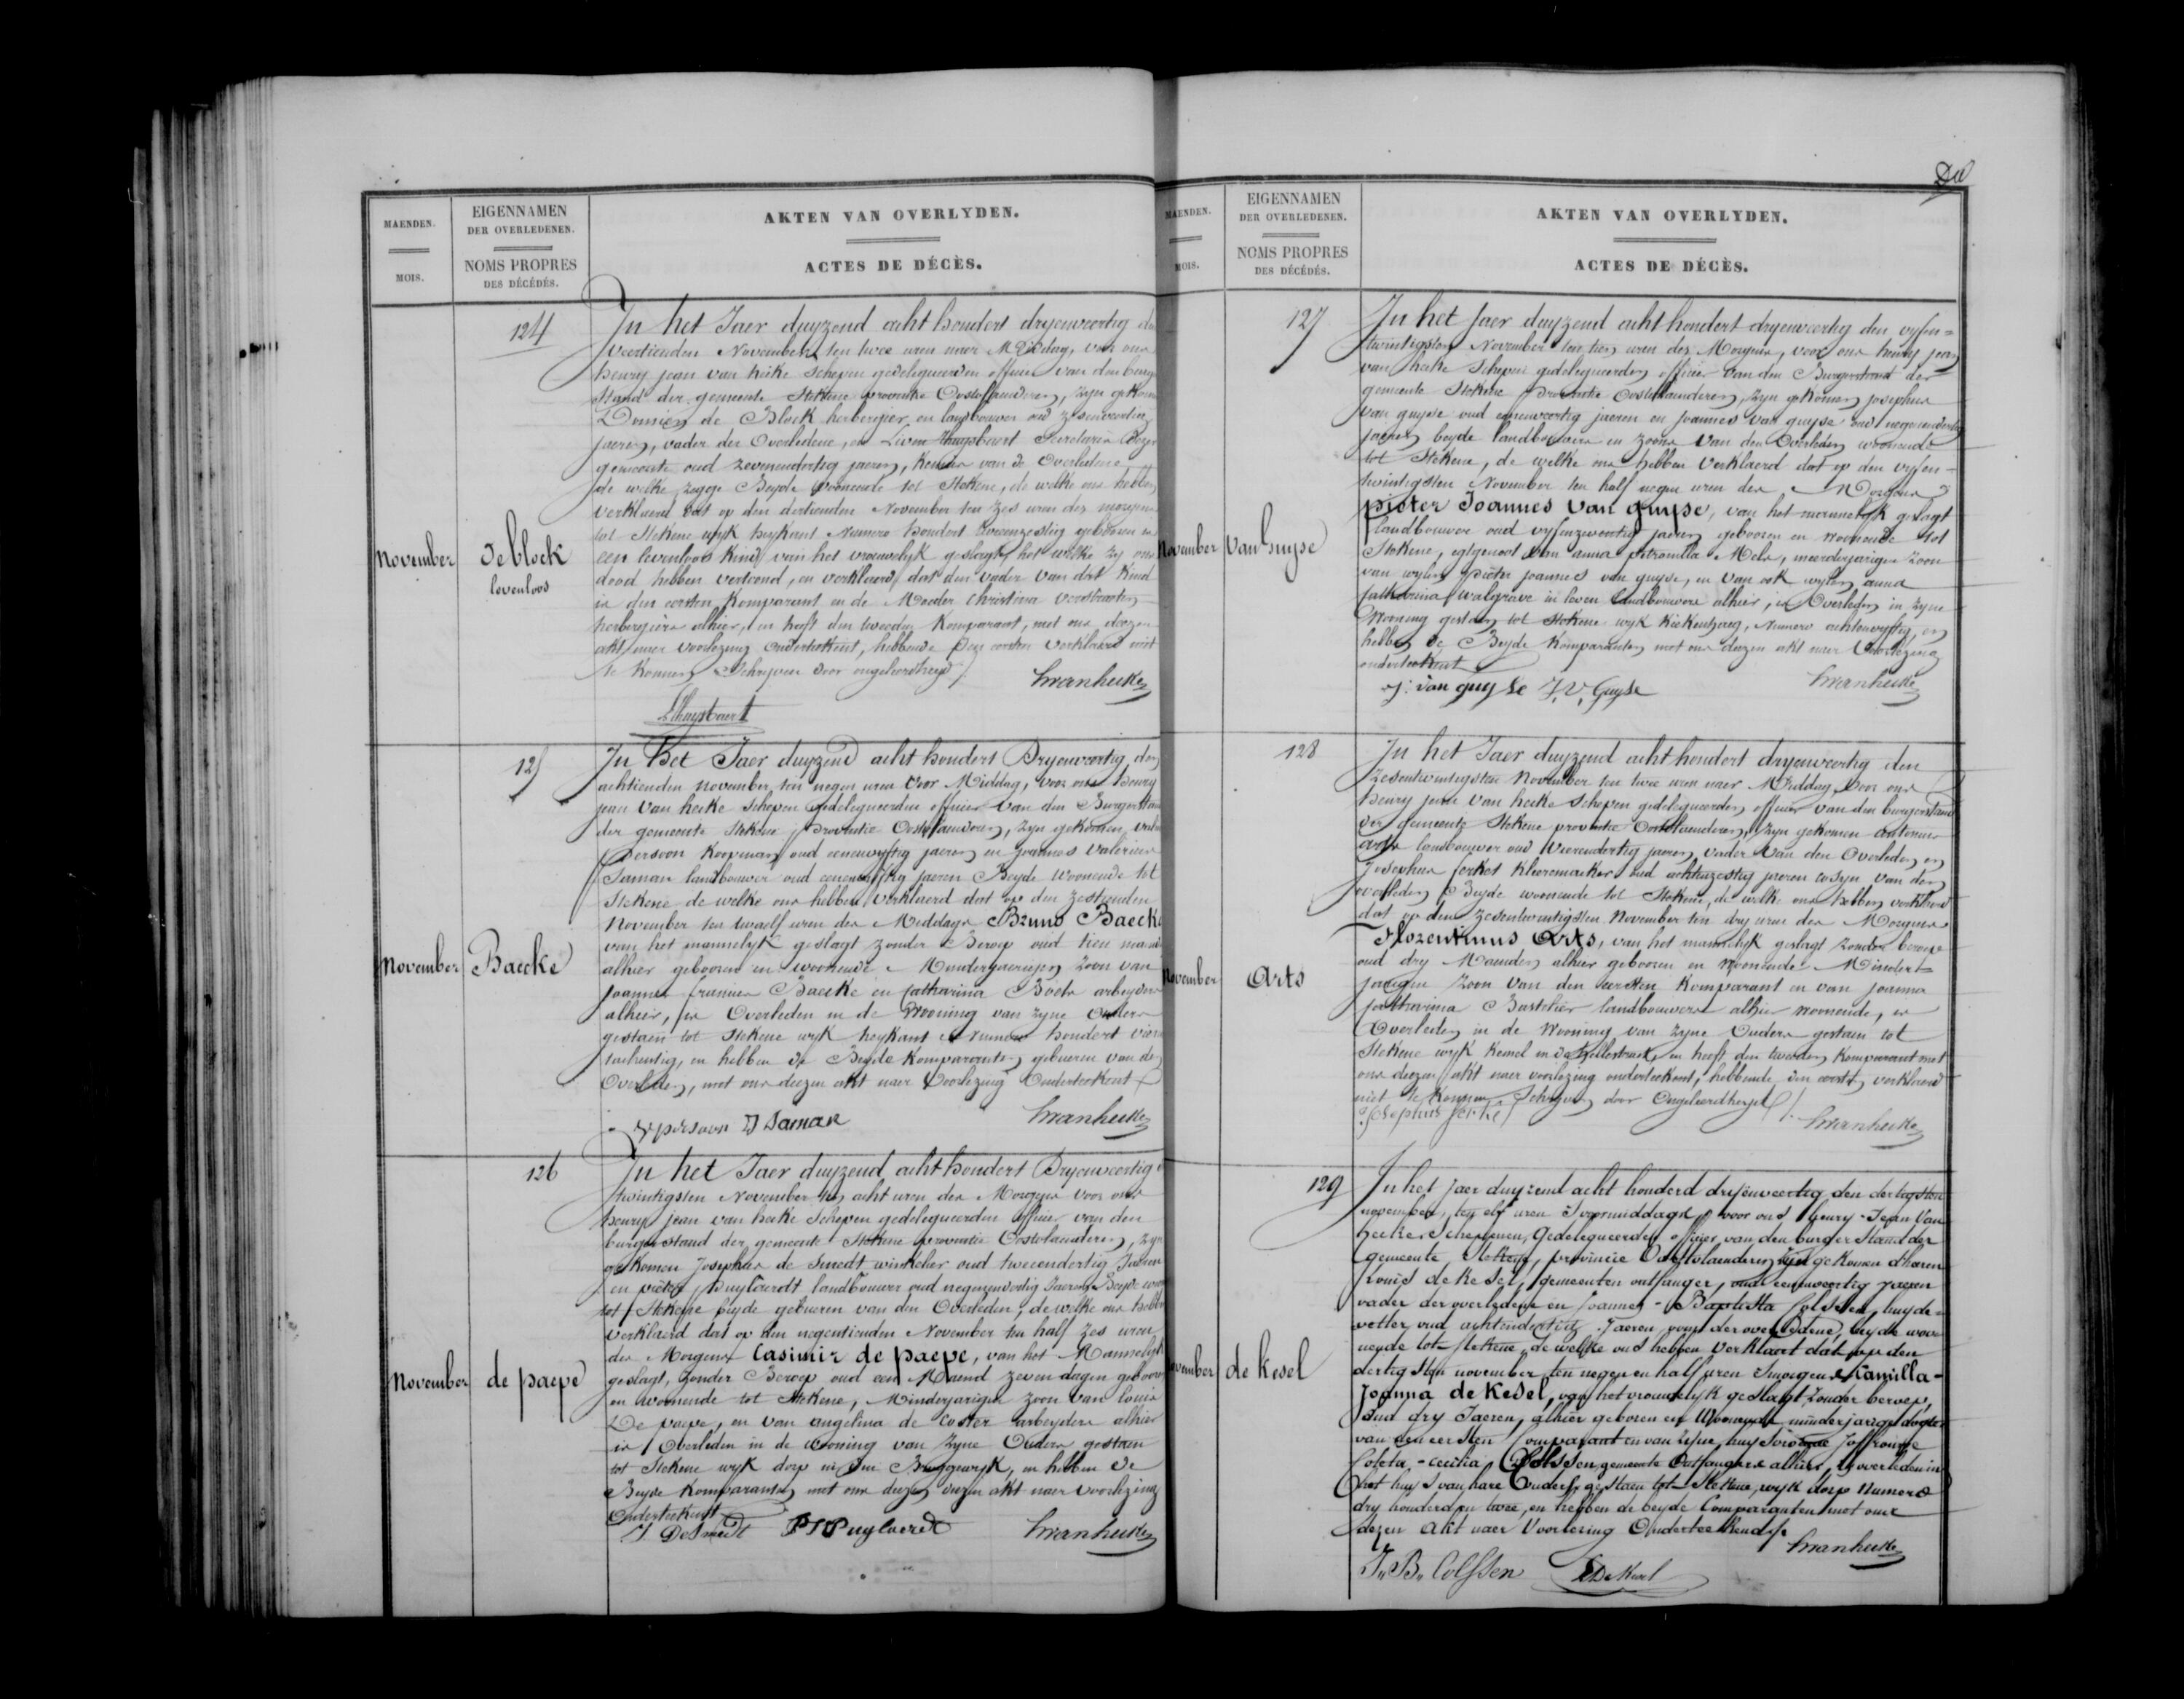 MAENDEN.
MOIS.
EIGENNAMEN
DER OVERLEDENEN.
NOMS PROPRES
DES DÉCÉDÉS.
AKTEN VAN OVERLYDEN.
ACTES DE DÉCÈS.
124
November
De block
levenloos
In het Jaer duyzend acht hondert dryenveertig den
veertienden November ten twee uren naer Middag, voor ons
henry jean van hecke schepen gedelegueerden officier van den burger
stand der gemeente Stekene provintie Oostvlaenderen, zyn gekomen
de Block herbergier en landbouwer oud zesenveertig
jaeren, vader der Overledene, en Livin Thuysbaert Secretaris dezer
gemeente oud zevenendertig jaeren, kennis van de Overledene
de welke zegge Beyde woonende tot Stekene, de welke ons hebben
verklaerd dat op den dertienden November ten zes uren des morgens
tot Stekene wyk heykant Numero hondert tweeenzestig gebooren is
een levenloos kind van het vrouwelyk geslagt, het welke zy ons
dood hebben vertoond, en verklaerd dat den vader van dit kind
is den eersten komparant en de Moeder Christina verstraeten
herbergierse alhier, en heeft den tweeden komparant, met ons deezen
akt naer voorlezing onderteekent, hebbende den eersten verklaerd niet
te konnen schryven door ongeleerdheyd
hvanhecke
LThuysbaert
125
November
Baecke
In het Jaer duyzend acht hondert Dryenveertig den
achtienden november ten negen uren voor Middag, voor ons henry
jean van hecke schepen gedelegueerden officier van den Burgerstand
der gemeente Stekene provintie Oostvlaenderen, zyn gekomen
Persoon koopman oud eenenvyftig jaeren en joannes valerius
Saman landbouwer oud eenenvyftig jaeren Beyde woonende tot
Stekene de welke ons hebben verklaerd dat op den zestienden
November ten twaelf uren des Middags Bruno Baecke
van het mannelyk geslagt zonder Beroep oud tien maenden
alhier gebooren en woonende Minderjaerigen zoon van
joannes francies Baecke en Catharina Boels arbeyders
alhier, is Overleden in de Wooning van zyne Ouders
gestaen tot Stekene wyk heykant Numero hondert vier
tachentig, en hebben de Beyde komparanten gebueren van den
Overleden, met ons deezen akt naer voorlezing Onderteekent
persoon J Saman
hvanhecke
126
November
de paepe
In het Jaer duyzend acht hondert Dryenveertig
twintigsten November ten acht uren des Morgens voor ons
henry jean van hecke Schepen gedelegueerden officier van den
burgerstand der gemeente Stekene provintie Oostvlaenderen, zyn
gekomen Josephus de Smedt winkelier oud tweeendertig Jaeren
en pieter Puylaerdt landbouwer oud negenenveertig Jaeren Beyde woonende
tot Stekene beyde gebueren van den Overleden, de welke ons hebben
verklaerd dat op den negentienden November ten half zes uren
des Morgens Casimir de paepe, van het Mannelyk
geslagt, zonder Beroep oud een Maend zeven dagen gebooren
en woonende tot Stekene, Minderjarigen zoon van louis
De paepe, en van angelina de Coster arbeyders alhier
is Overleden in de wooning van zyne Ouders gestaen
tot Stekene wyk dorp in den Bruggewyk, en hebben de
Beyde komparanten met ons deezen akt naer voorlezing
Onderteekent
J. DeSmedt PJPuylaerdt
hvanhecke
MAENDEN.
MOIS.
EIGENNAMEN
DER OVERLEDENEN.
NOMS PROPRES
DES DÉCÉDÉS.
AKTEN VAN OVERLYDEN.
ACTES DE DÉCÈS.
127
November
Van guyse
In het Jaer duyzend acht hondert dryenveertig den vyfen=
twintigsten November ten tien uren des Morgens, voor ons henry jean
van hecke Schepen gedelegueerden officier van den Burgerstand der
gemeente Stekene provintie Oostvlaenderen, zyn gekomen josephus
van guyse oud eenenveertig jaeren en joannes van guyse oud negenendertig
jaeren beyde landbouwers en zoons van den Overleden woonende
tot Stekene, de welke ons hebben verklaerd dat op den vyfen-
twintigsten November ten half negen uren des Morgens
pieter Joannes Van guyse, van het mannelyk geslagt
landbouwer oud jaeren gebooren en woonende tot
Stekene, egtgenoot van anna petronilla Mels, meerderjarigen zoon
van wylen pieter joannes van guyse, en van ook wylen anna
Catharina walgrave in leven landbouwers alhier, is Overleden in zyne
Wooning gestaen tot Stekene wyk Numero achtenvyftig, en
hebben de Beyde komparanten met ons deezen akt naer Voorlezing
onderteekent
J: van guyse J,V, Guyse
hvanhecke
128
November
Arts
In het Jaer duyzend acht hondert dryenveertig den
zesentwintigsten November ten twee uren naer Middag, voor ons
henry jean van hecke schepen gedelegueerden officier van den burgerstand
der gemeente Stekene provintie Oostvlaenderen, zyn gekomen antonius
Arts landbouwer oud vierendertig jaeren vader van den Overleden, en
Josephus ferket kleermaeker oud achtenzestig jaeren cosyn van den
overleden, Beyde woonende tot Stekene, de welke ons hebben verklaerd
dat op den zesentwintigsten November ten dry uren des Morgens
Florentinus Arts, van het mannelyk geslagt zonder beroep
oud dry Maenden alhier gebooren en woonende Minder=
jarigen zoon van den eersten komparant en van joanna
Catharina landbouwers alhier woonende, is
Overleden in de Wooning van zyne Ouders gestaen tot
Stekene wyk kemel in de hellestraet, en heeft den tweeden komparant met
ons deezen akt naer voorlezing onderteekent, hebbende den eersten verklaerd
niet te konnen Schryven door Ongeleerdheyd
Josephus ferket
hvanhecke
129
November
de Kesel
In het jaer duyzend acht honderd dryënveertig den dertigsten
november, ten elf uren Svoormiddags, voor ons henry-Jean Van
hecke Schepenen, Gedelegueerden officier van den burger Stand der
gemeente Stekene, provincie Oostvlaenderen, zyn gekomen
Louis de Kesel, gemeenten ontfanger, oud eenenveertig jaeren
vader der overledene en Joannes-Baptista Colssen, huyde=
vetter oud achtendertig Jaeren, oom der overledene, beyde woo-
nende tot Stekene, de welke ons hebben Verklaert dat op den
dertigsten november ten negen en half uren Smorgens Camilla-
Joanna de Kesel, van het vrouwelyk geslagt, zonder beroep,
oud dry Jaeren, alhier geboren en Woonende, minderjarige dogter
van den eersten Comparant en van zyne huysvrouwe Joffrouwe
Coleta-Cecilia Colssen, gemeente Ontfangers alhier, is overleden in
het huys van hare Ouders gestaen tot Stekene, wyk dorp Numero
dry honderd en twee, en hebben de beyde Comparanten met ons
dezen akt naer Voorlezing Onderteekend
hvanhecke
J,, B,, Colssen LDeKesel